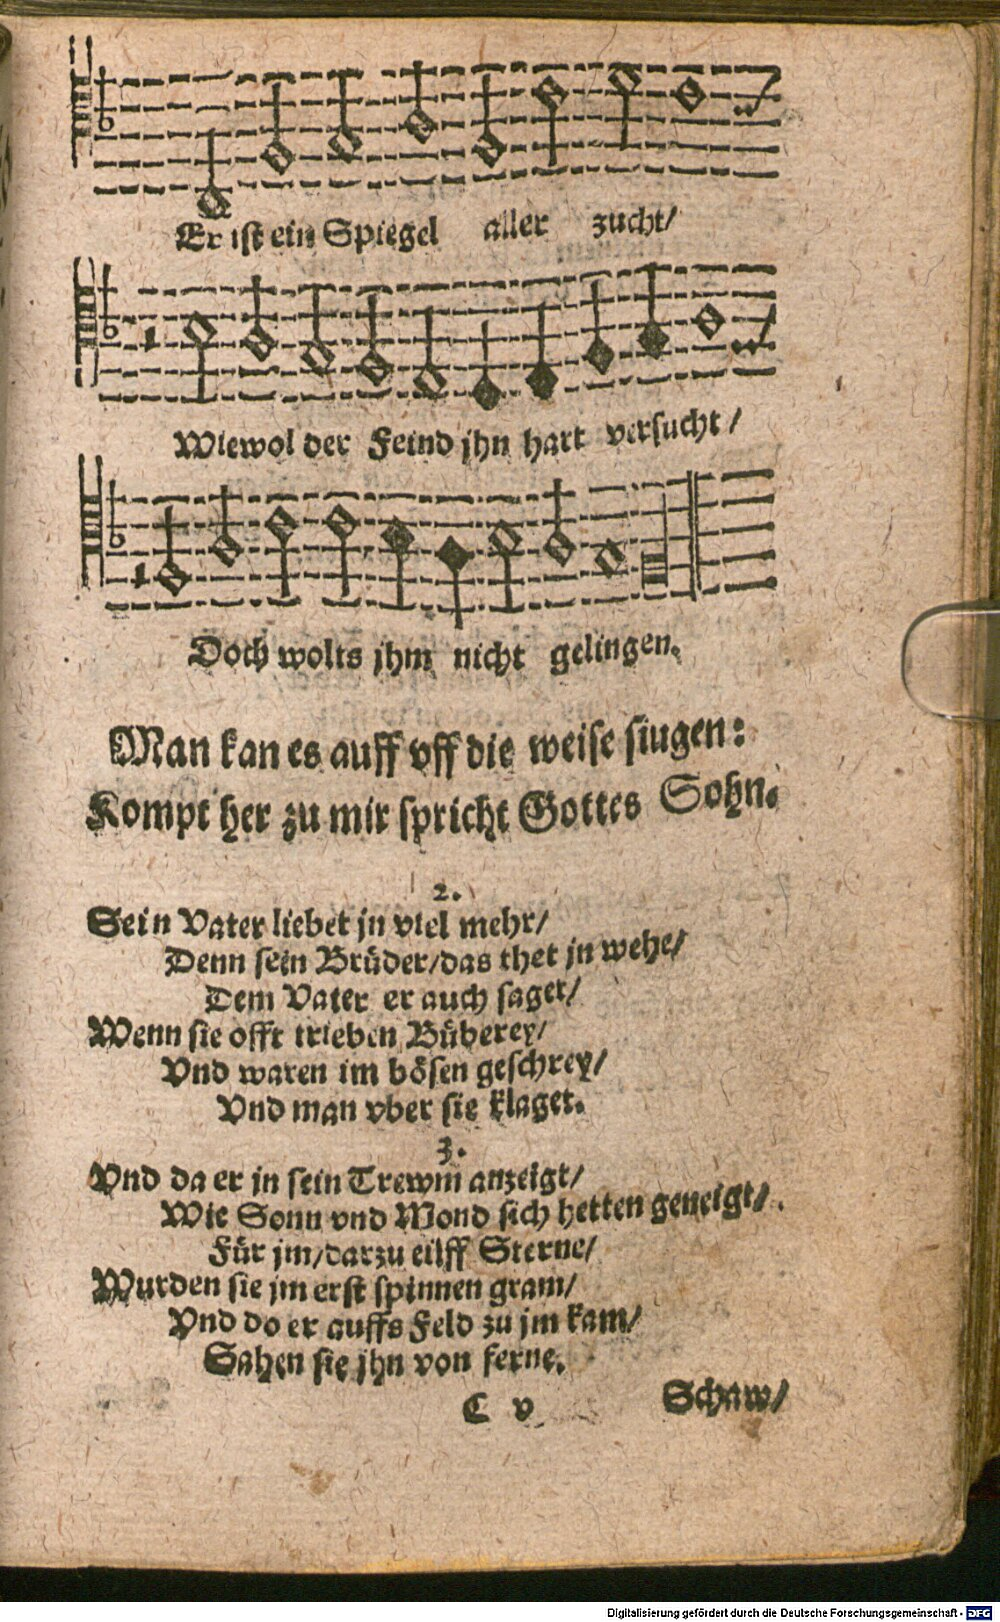 Er ist ein Spiegel aller zucht/
Wiewol der Feind jhn hart versucht/
Doch wolts jhm nicht gelingen.
Man kan es auff vff die weise siugen:
Kompt her zu mir spricht Gottes Sohn.
2.
Sein Vater liebet jn viel mehr/
Denn sein Brüder/das thet jn wehe/
Dem Vater er auch saget/
Wenn sie offt trieben Büberey/
Vnd waren im bösen geschrey/
Vnd man vber sie klaget.
3.
Vnd da er jn sein Trewm anzeigt/
Wie Sonn vnd Mond sich hetten geneigt/
Für jm/darzu eilff Sterne/
Wurden sie jm erst spinnen gram/
Vnd do er auffs Feld zu jm kam/
Sahen sie jhn von ferne.
C v Schaw/
Digitalisierung gefördert durch die Deutsche Forschungsgemeinschaft - DFG